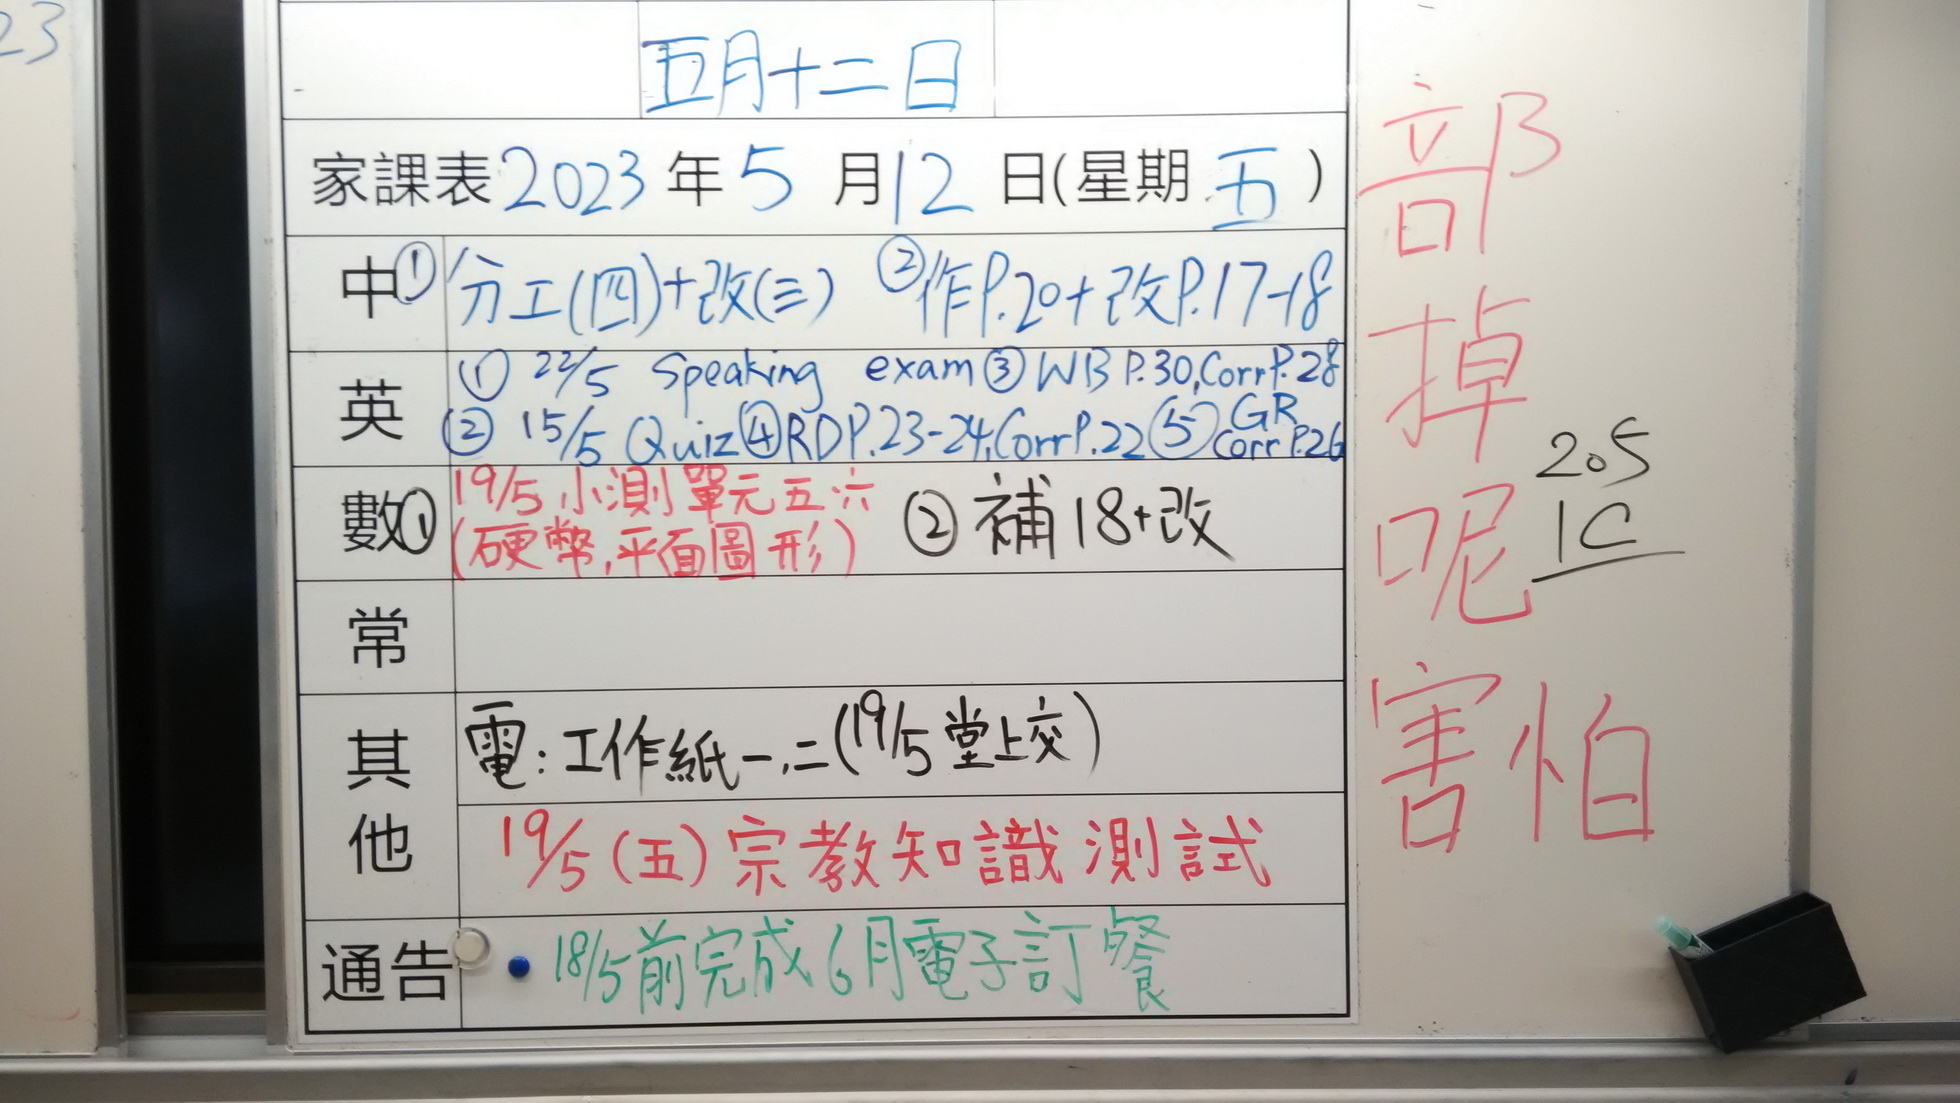 23
五月十二日
家課表2023年5月12日(星期五)
中① 分工(四)+改(三) ②作P.20+改P.17-18
英 ① 22/5 Speaking exam ③ WB P.30, Corr P.28
② 15/5 Quiz ④ RD P.23-24, Corr P.22 ⑤ GR Corr P.26
數① 19/5 小測單元五.六
(硬幣,平面圖形) ② 補18+改
常
其他
電:工作紙一,二(19/5堂上交)
19/5(五)宗教知識測試
通告 18/5前完成6月電子訂餐
部
掉
呢
害怕
20.5
1C